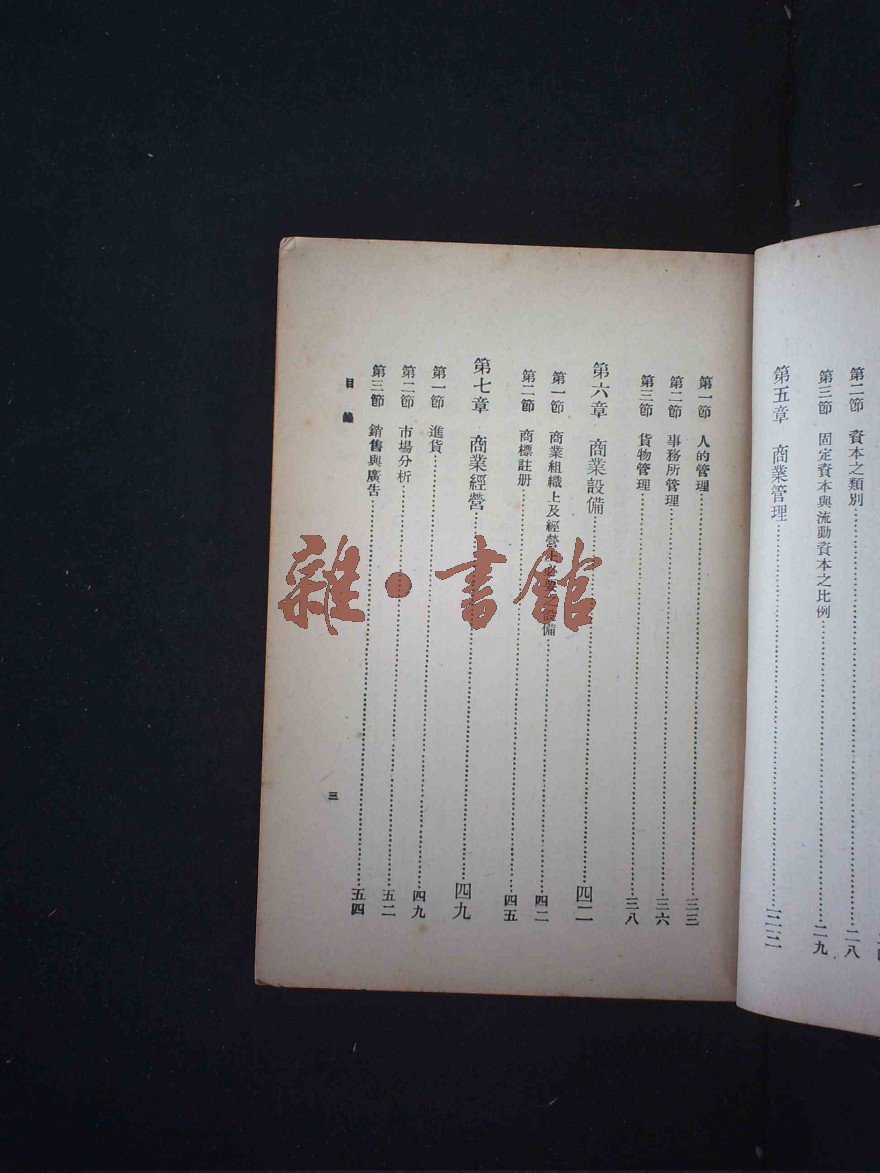 第二節 資本之類別……二八
第三節 固定資本與流動資本之比例……二九
第五章 商業管理……三三
第一節 人的管理……三三
第二節 事務所管理……三六
第三節 貨物管理……三八
第六章 商業設備……四二
第一節 商業組織上及經營上必要之設備……四二
第二節 商標註册……四五
第七章 商業經營……四九
第一節 進貨……四九
第二節 市場分析……五二
第三節 銷售與廣告……五四
目 錄
三
雜·書館